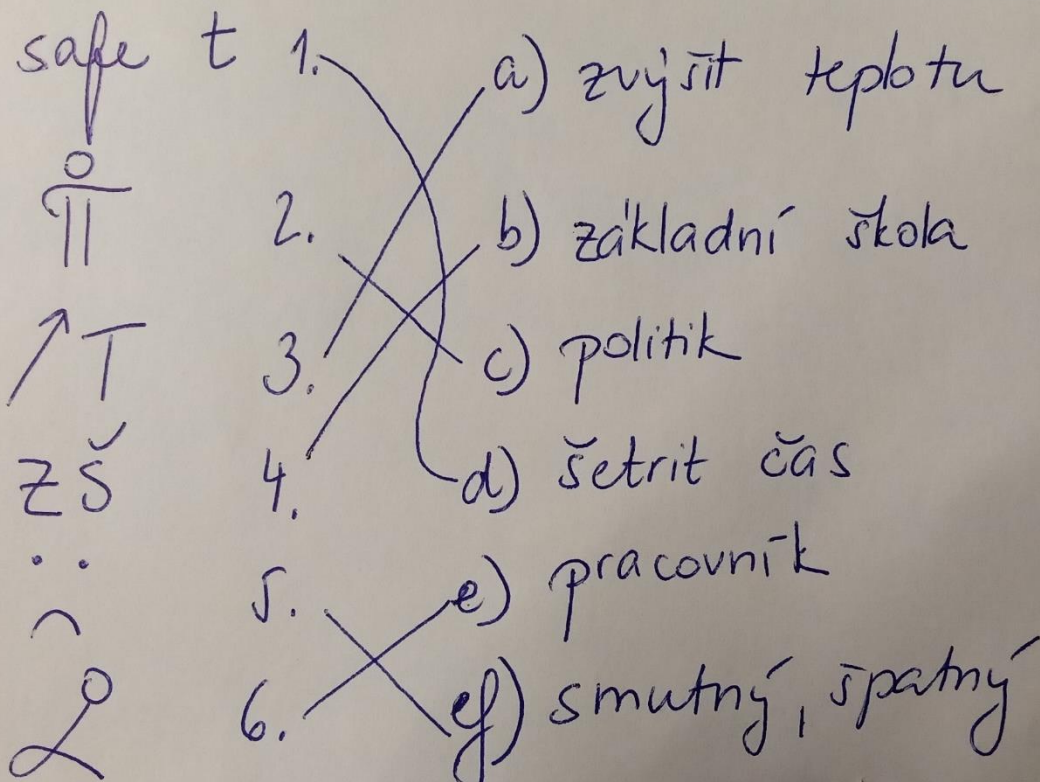 safe t 1. a) zvýšit teplotu
2. b) základní škola
↗ T 3. c) politik
ZŠ 4. d) šetrit čas
5. e) pracovník
6. f) smutný, špatný